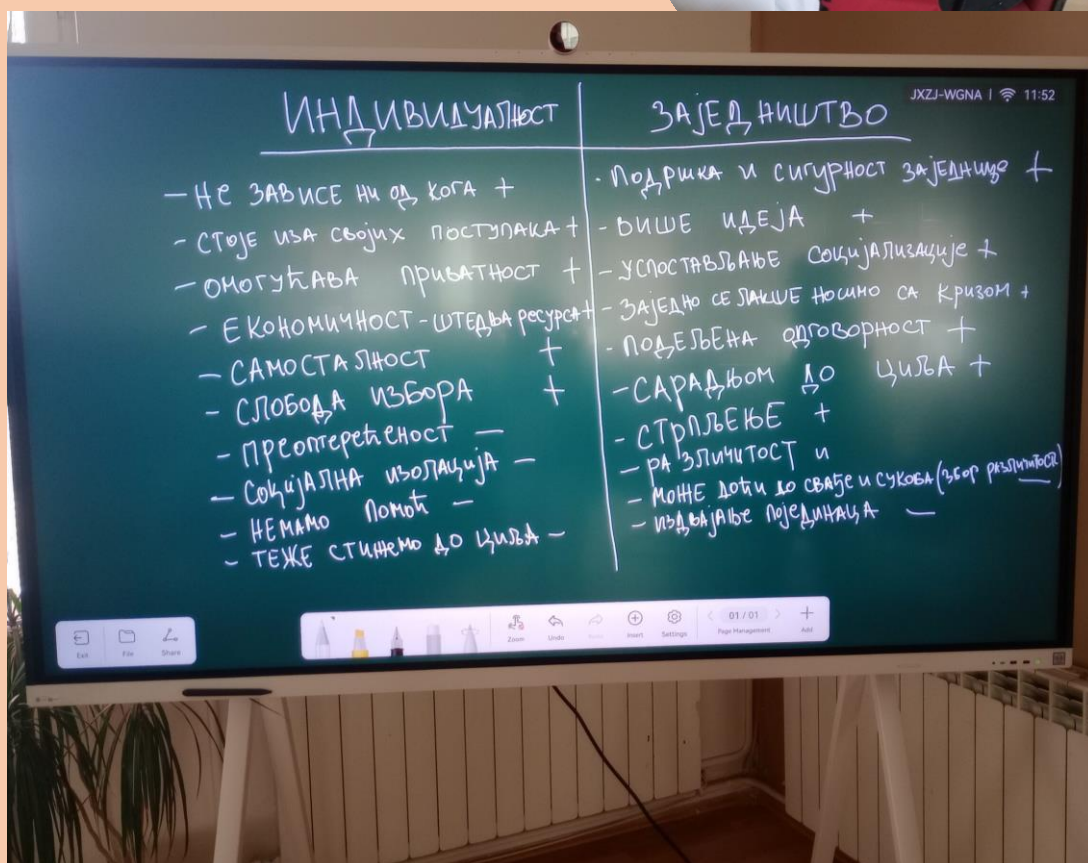 JXZJ-WGNA | 11:52
ИНДИВИДУАЛНОСТ
- НЕ ЗАВИСЕ НИ ОД КОГА +
- СТОЈЕ ИЗА СВОЈИХ ПОСТУПАКА +
- ОМОГУЋАВА ПРИВАТНОСТ +
- ЕКОНОМИЧНОСТ - ШТЕДЊА РЕСУРСА +
- САМОСТАЛНОСТ +
- СЛОБОДА ИЗБОРА +
- ПРЕОПТЕРЕЋЕНОСТ -
- СОЦИЈАЛНА ИЗОЛАЦИЈА -
- НЕМАМО ПОМОЋ -
- ТЕЖЕ СТИЖЕМО ДО ЦИЉА -
ЗАЈЕДНИШТВО
- ПОДРШКА И СИГУРНОСТ ЗАЈЕДНИЦЕ +
- ВИШЕ ИДЕЈА +
- УСПОСТАВЉАЊЕ СОЦИЈАЛИЗАЦИЈЕ +
- ЗАЈЕДНО СЕ ЛАКШЕ НОСИМО СА КРИЗОМ +
- ПОДЕЉЕНА ОДГОВОРНОСТ +
- САРАДЊОМ ДО ЦИЉА +
- СТРПЉЕЊЕ +
- РАЗЛИЧИТОСТ И
- МОЖЕ ДОЋИ ДО СВАЂЕ И СУКОБА (ЗБОГ РАЗЛИЧИТОСТИ) -
- ИЗДВАЈАЊЕ ПОЈЕДИНАЦА -
Exit File Share Zoom Undo Redo Insert Settings < 01 / 01 > Page Management Add